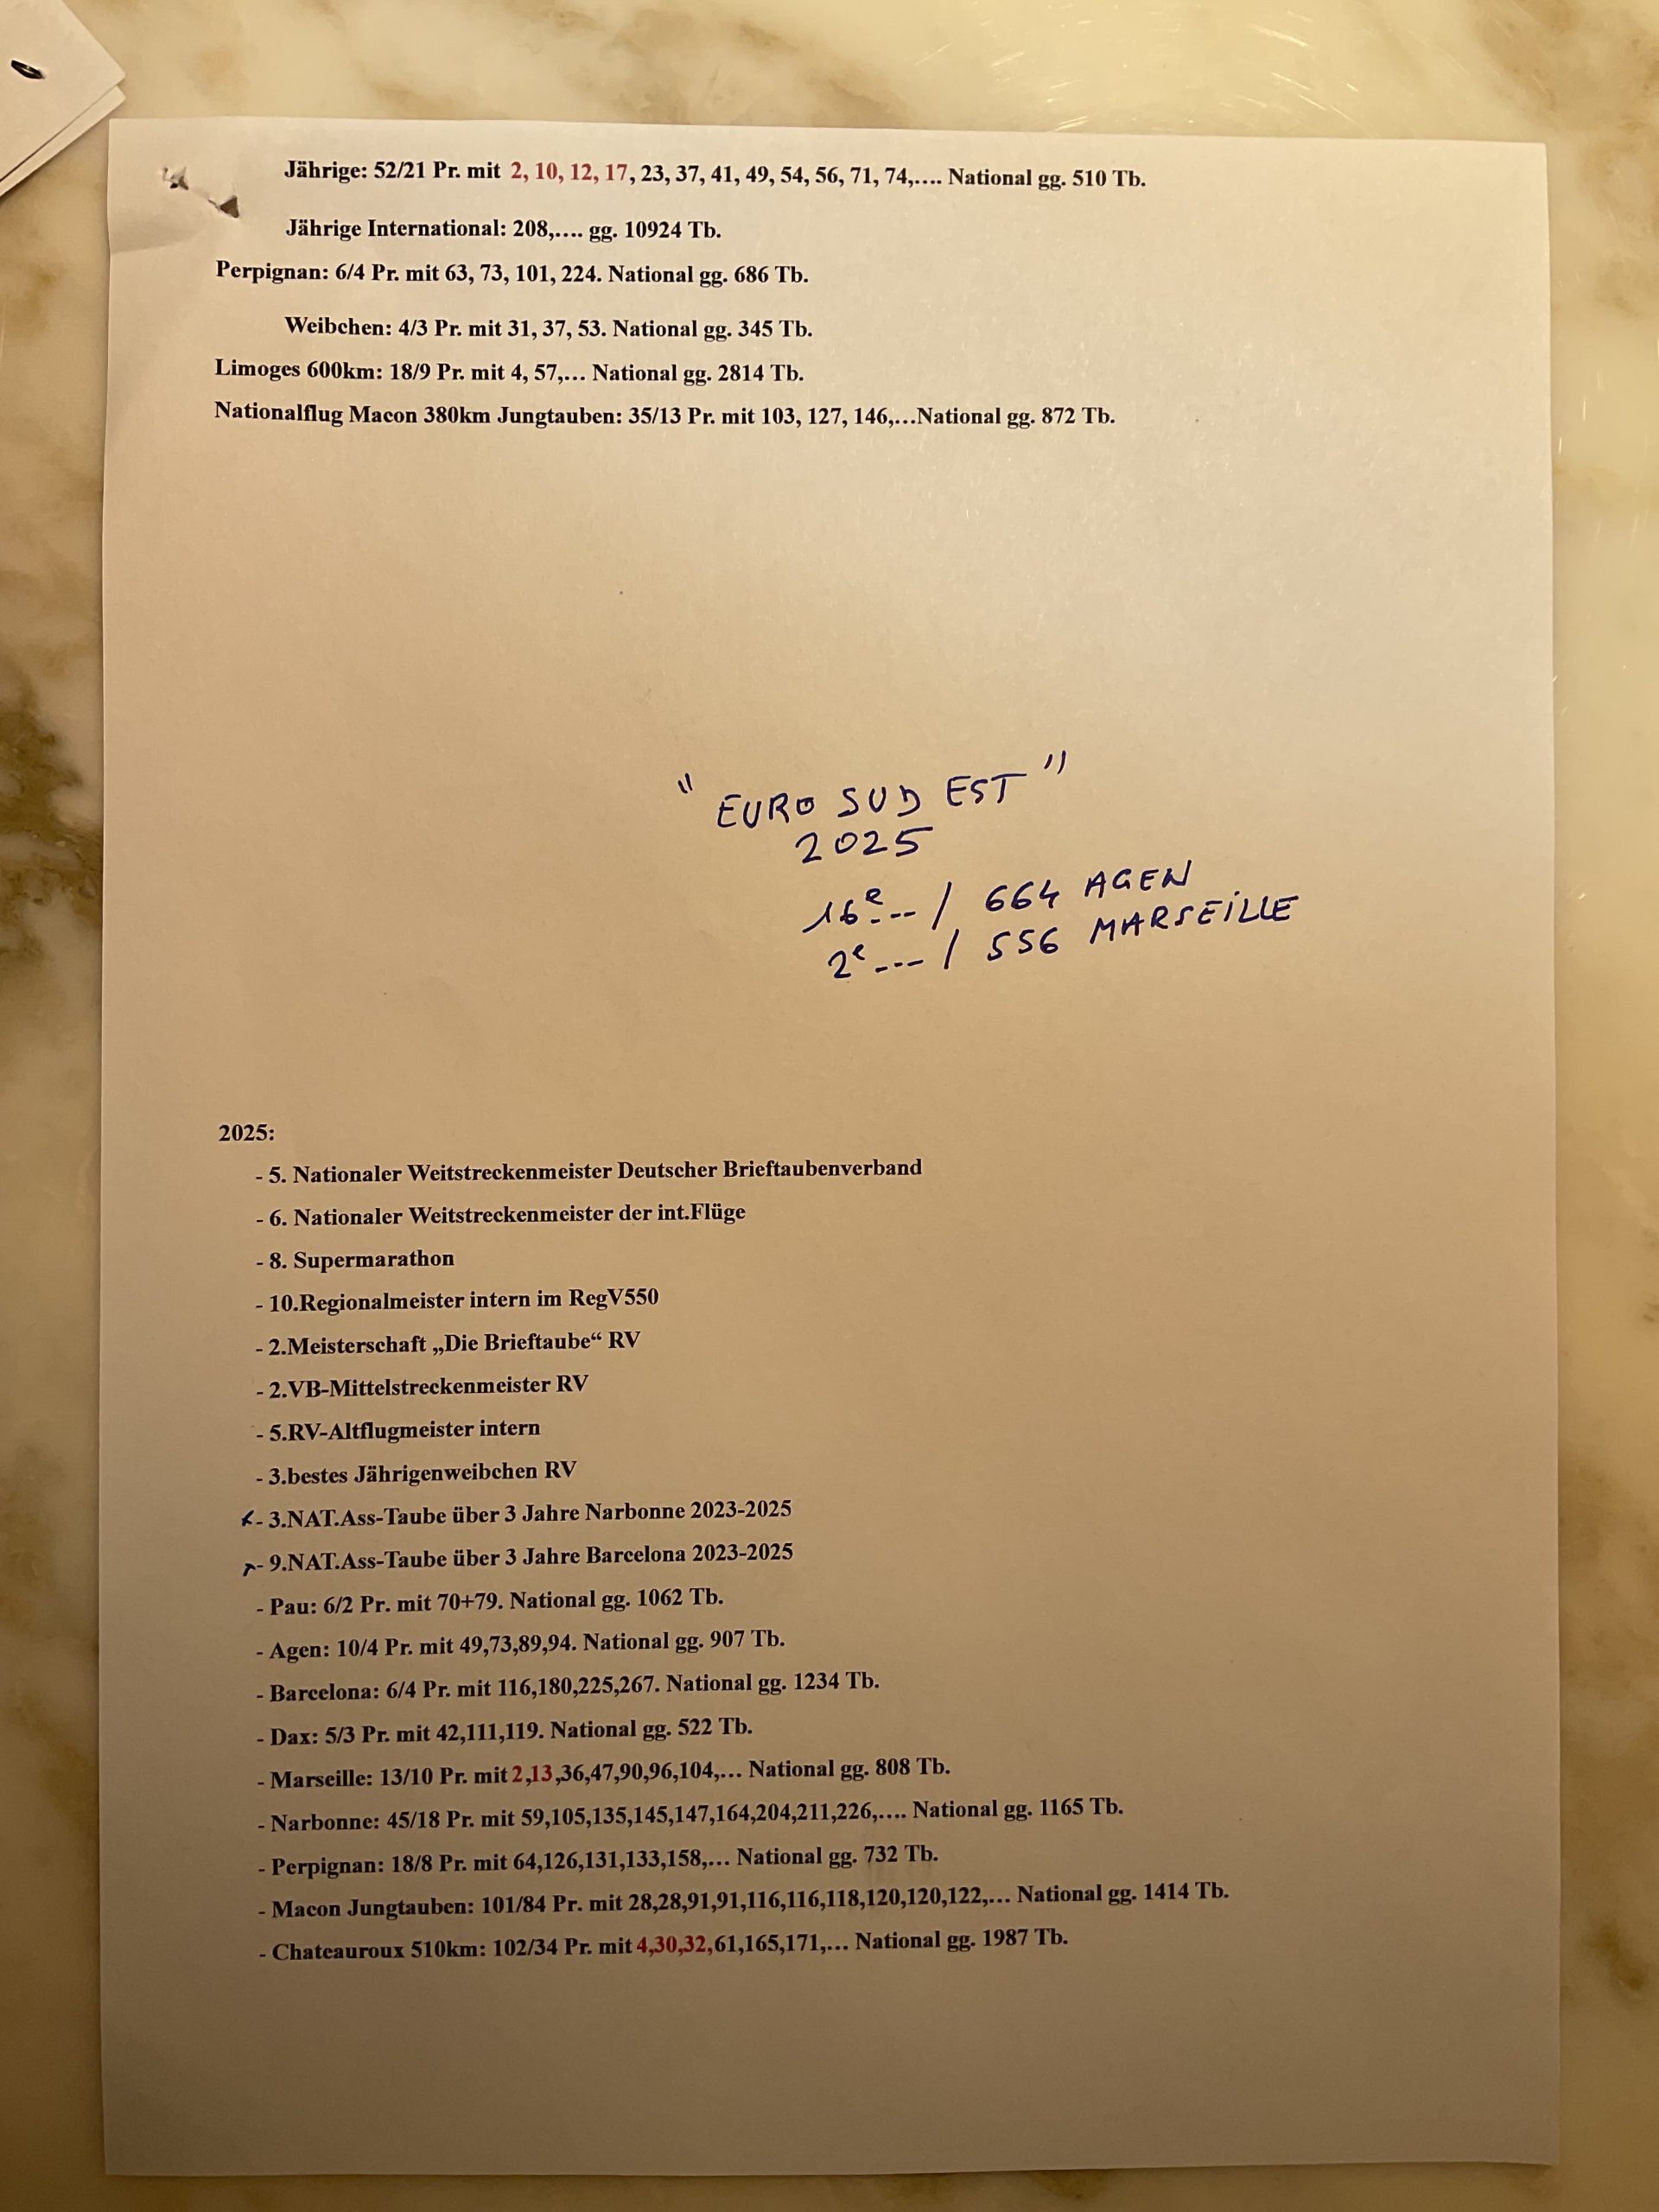 Jährige: 52/21 Pr. mit 2, 10, 12, 17, 23, 37, 41, 49, 54, 56, 71, 74,…. National gg. 510 Tb.
Jährige International: 208,…. gg. 10924 Tb.
Perpignan: 6/4 Pr. mit 63, 73, 101, 224. National gg. 686 Tb.
Weibchen: 4/3 Pr. mit 31, 37, 53. National gg. 345 Tb.
Limoges 600km: 18/9 Pr. mit 4, 57,… National gg. 2814 Tb.
Nationalflug Macon 380km Jungtauben: 35/13 Pr. mit 103, 127, 146,…National gg. 872 Tb.
" EURO SUD EST "
2025
16e--- / 664 AGEN
2e --- / 556 MARSEILLE
2025:
- 5. Nationaler Weitstreckenmeister Deutscher Brieftaubenverband
- 6. Nationaler Weitstreckenmeister der int.Flüge
- 8. Supermarathon
- 10.Regionalmeister intern im RegV550
- 2.Meisterschaft „Die Brieftaube“ RV
- 2.VB-Mittelstreckenmeister RV
- 5.RV-Altflugmeister intern
- 3.bestes Jährigenweibchen RV
- 3.NAT.Ass-Taube über 3 Jahre Narbonne 2023-2025
- 9.NAT.Ass-Taube über 3 Jahre Barcelona 2023-2025
- Pau: 6/2 Pr. mit 70+79. National gg. 1062 Tb.
- Agen: 10/4 Pr. mit 49,73,89,94. National gg. 907 Tb.
- Barcelona: 6/4 Pr. mit 116,180,225,267. National gg. 1234 Tb.
- Dax: 5/3 Pr. mit 42,111,119. National gg. 522 Tb.
- Marseille: 13/10 Pr. mit 2,13,36,47,90,96,104,… National gg. 808 Tb.
- Narbonne: 45/18 Pr. mit 59,105,135,145,147,164,204,211,226,…. National gg. 1165 Tb.
- Perpignan: 18/8 Pr. mit 64,126,131,133,158,… National gg. 732 Tb.
- Macon Jungtauben: 101/84 Pr. mit 28,28,91,91,116,116,118,120,120,122,… National gg. 1414 Tb.
- Chateauroux 510km: 102/34 Pr. mit 4,30,32,61,165,171,… National gg. 1987 Tb.